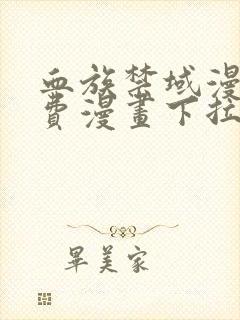 血族禁域漫
費漫畫下拉
畢美家